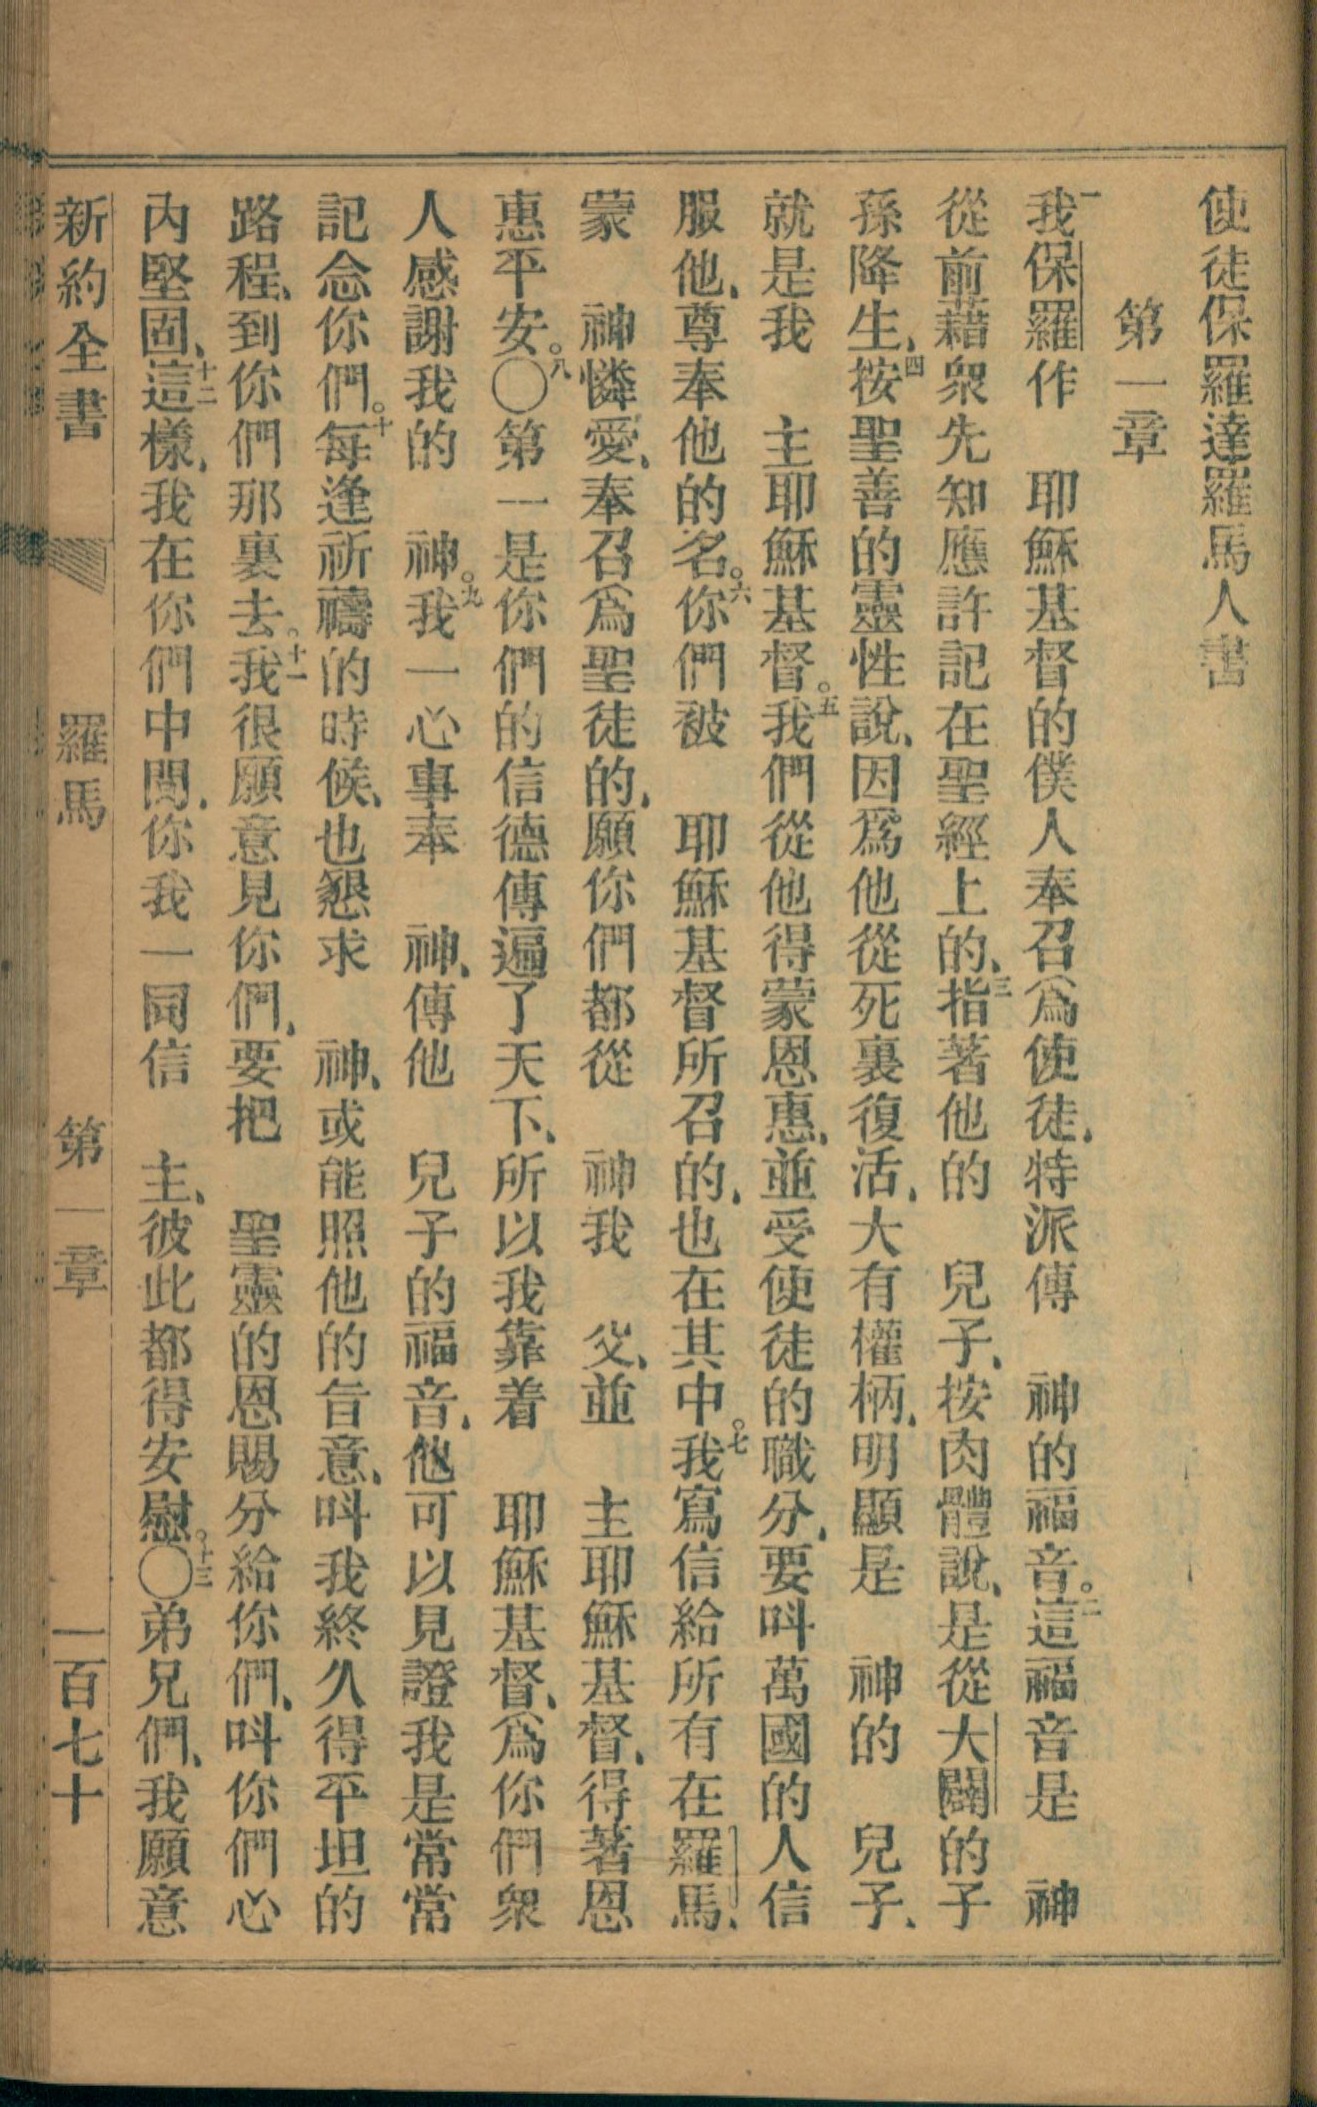 使徒保羅達羅馬人書
第一章
一我保羅作　耶穌基督的僕人奉召爲使徒、特派傳　神的福音。二這福音是　神
從前藉衆先知應許記在聖經上的、三指著他的　兒子、按肉體說、是從大闢的子
孫降生、四按聖善的靈性說、因爲他從死裏復活、大有權柄、明顯是　神的　兒子、
就是我　主耶穌基督。五我們從他得蒙恩惠、並受使徒的職分、要呌萬國的人信
服他、尊奉他的名。六你們被　耶穌基督所召的、也在其中。七我寫信給所有在羅馬、
蒙　神憐愛、奉召爲聖徒的、願你們都從　神我　父、並　主耶穌基督、得著恩
惠平安。八〇第一是你們的信德傳遍了天下、所以我靠着　耶穌基督、爲你們衆
人感謝我的　神。九我一心事奉　神、傳他　兒子的福音、他可以見證我是常常
記念你們。十每逢祈禱的時候、也懇求　神、或能照他的旨意、呌我終久得平坦的
路程、到你們那裏去。十一我很願意見你們、要把　聖靈的恩賜分給你們、呌你們心
內堅固、十二這樣、我在你們中間、你我一同信　主、彼此都得安慰。十三〇弟兄們、我願意
新約全書　羅馬　第一章　一百七十